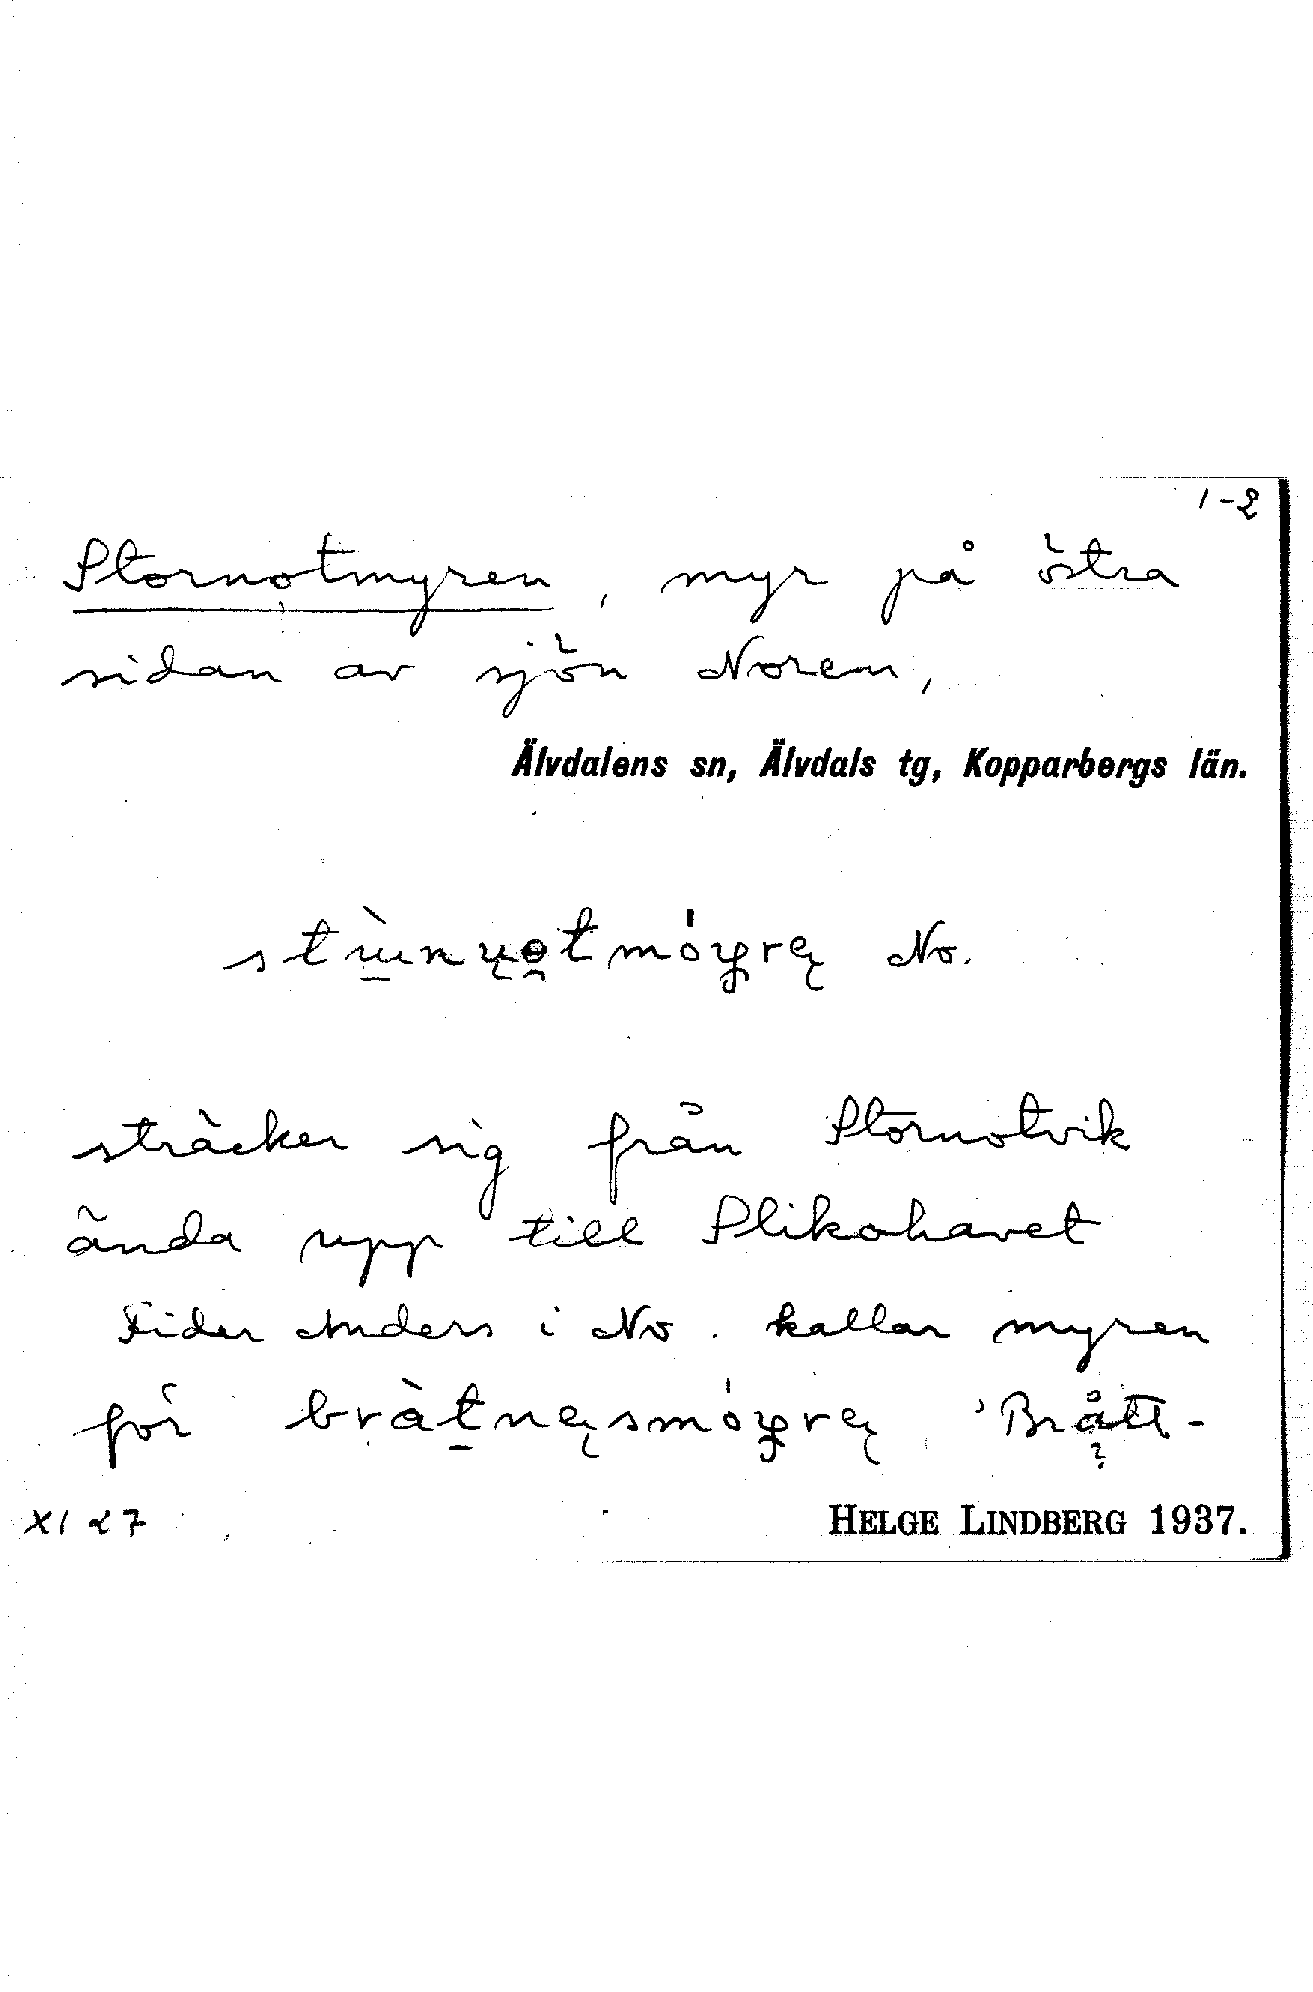 1-2
Stornotmyren, myr på östra
sidan av sjön Noren,
Älvdalens sn, Älvdals tg, Kopparbergs län.
No.
sträcker sig från Stornotvik
ända upp till Slikohavet
Fider Anders i No. kallar myren
för 'Brått-
XI 27
HELGE LINDBERG 1937.